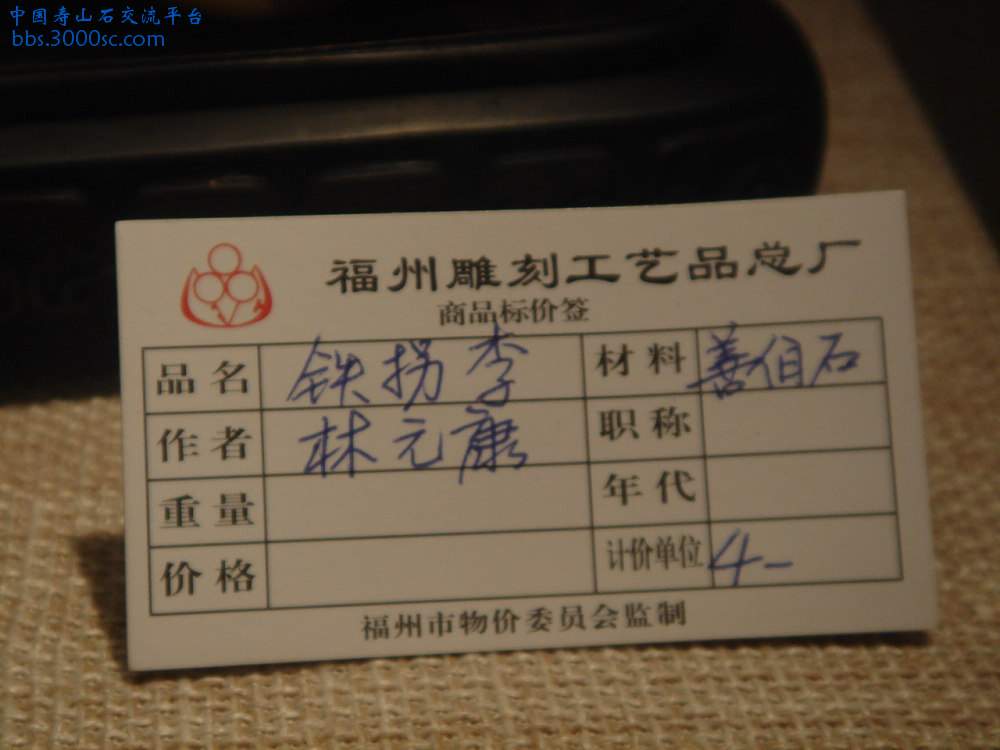 中国寿山石交流平台
bbs.3000sc.com
福州雕刻工艺品总厂
商品标价签
品名 铁拐李 材料 善伯石
作者 林元康 职称
重量 年代
价格 计价单位 4-
福州市物价委员会监制